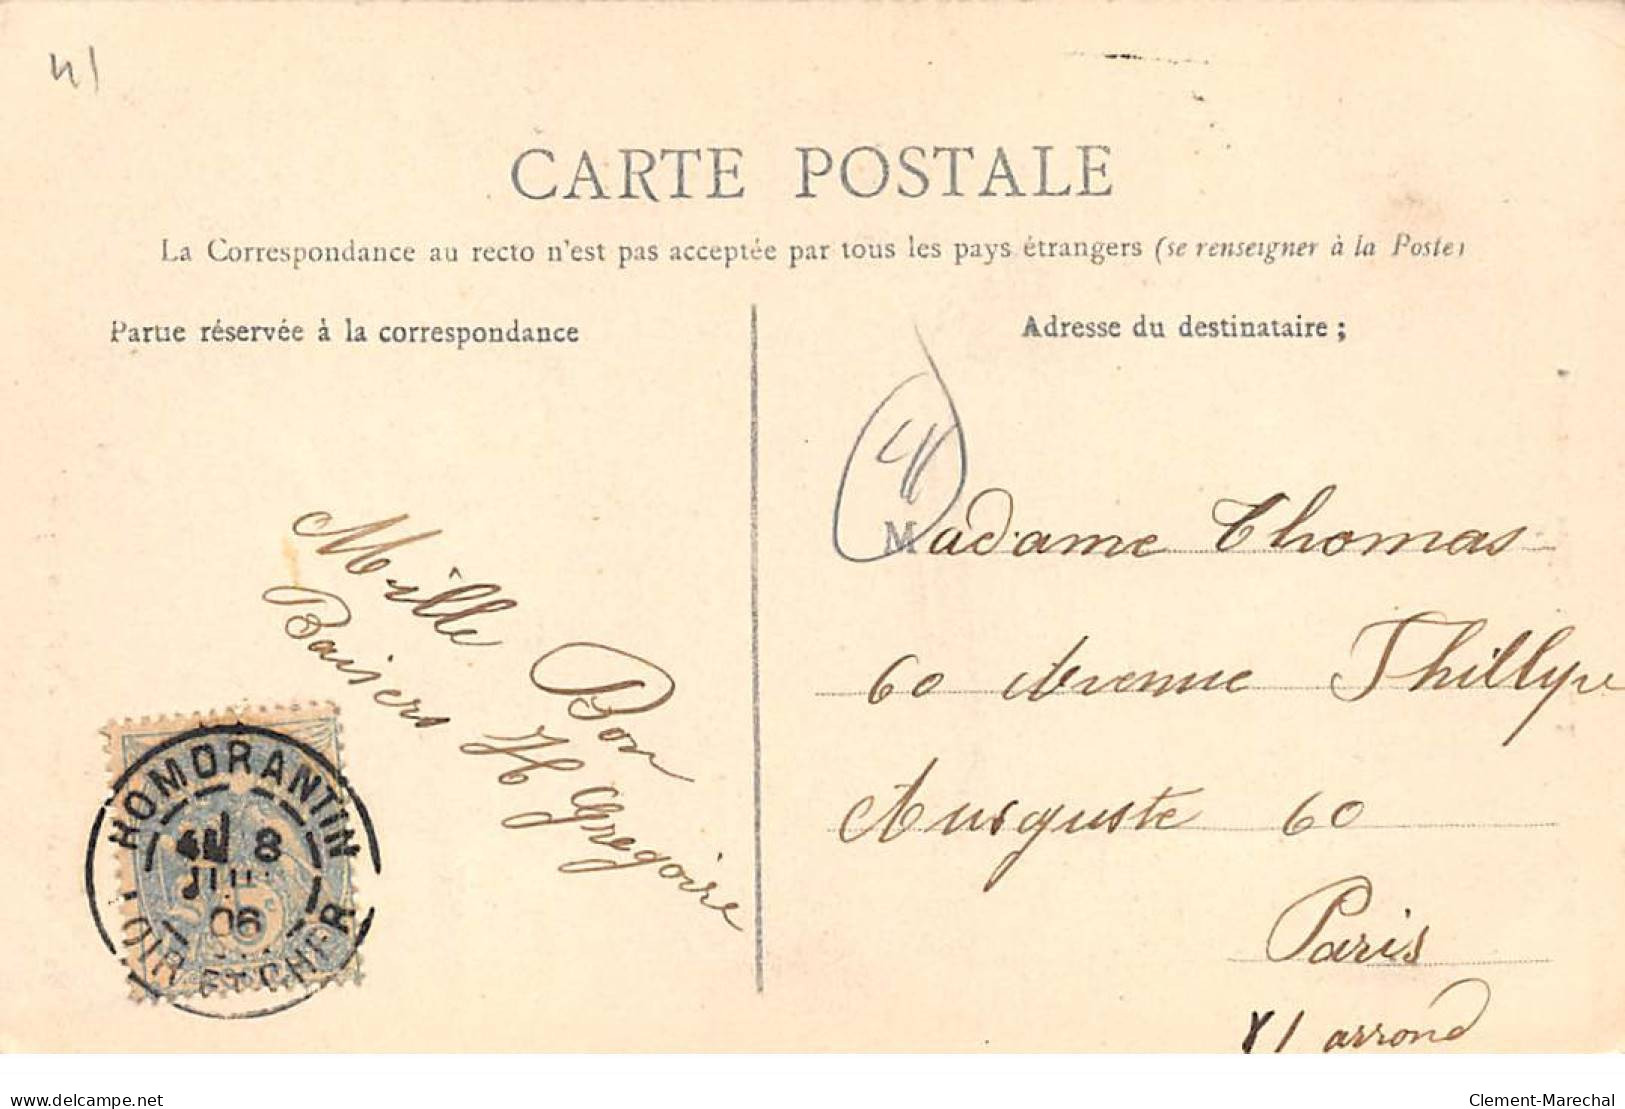 41
CARTE POSTALE
La Correspondance au recto n'est pas acceptée par tous les pays étrangers (se renseigner à la Poste)
Partie réservée à la correspondance
Adresse du destinataire ;
41
Mille Bon
Baisers
H Gregoire
Madame Thomas
60 Avenue Phillype
Ausguste 60
Paris
XI arrond
ROMORANTIN
8
JUIL
06
LOIR ET CHER
delcampe.net
Clement-Marechal